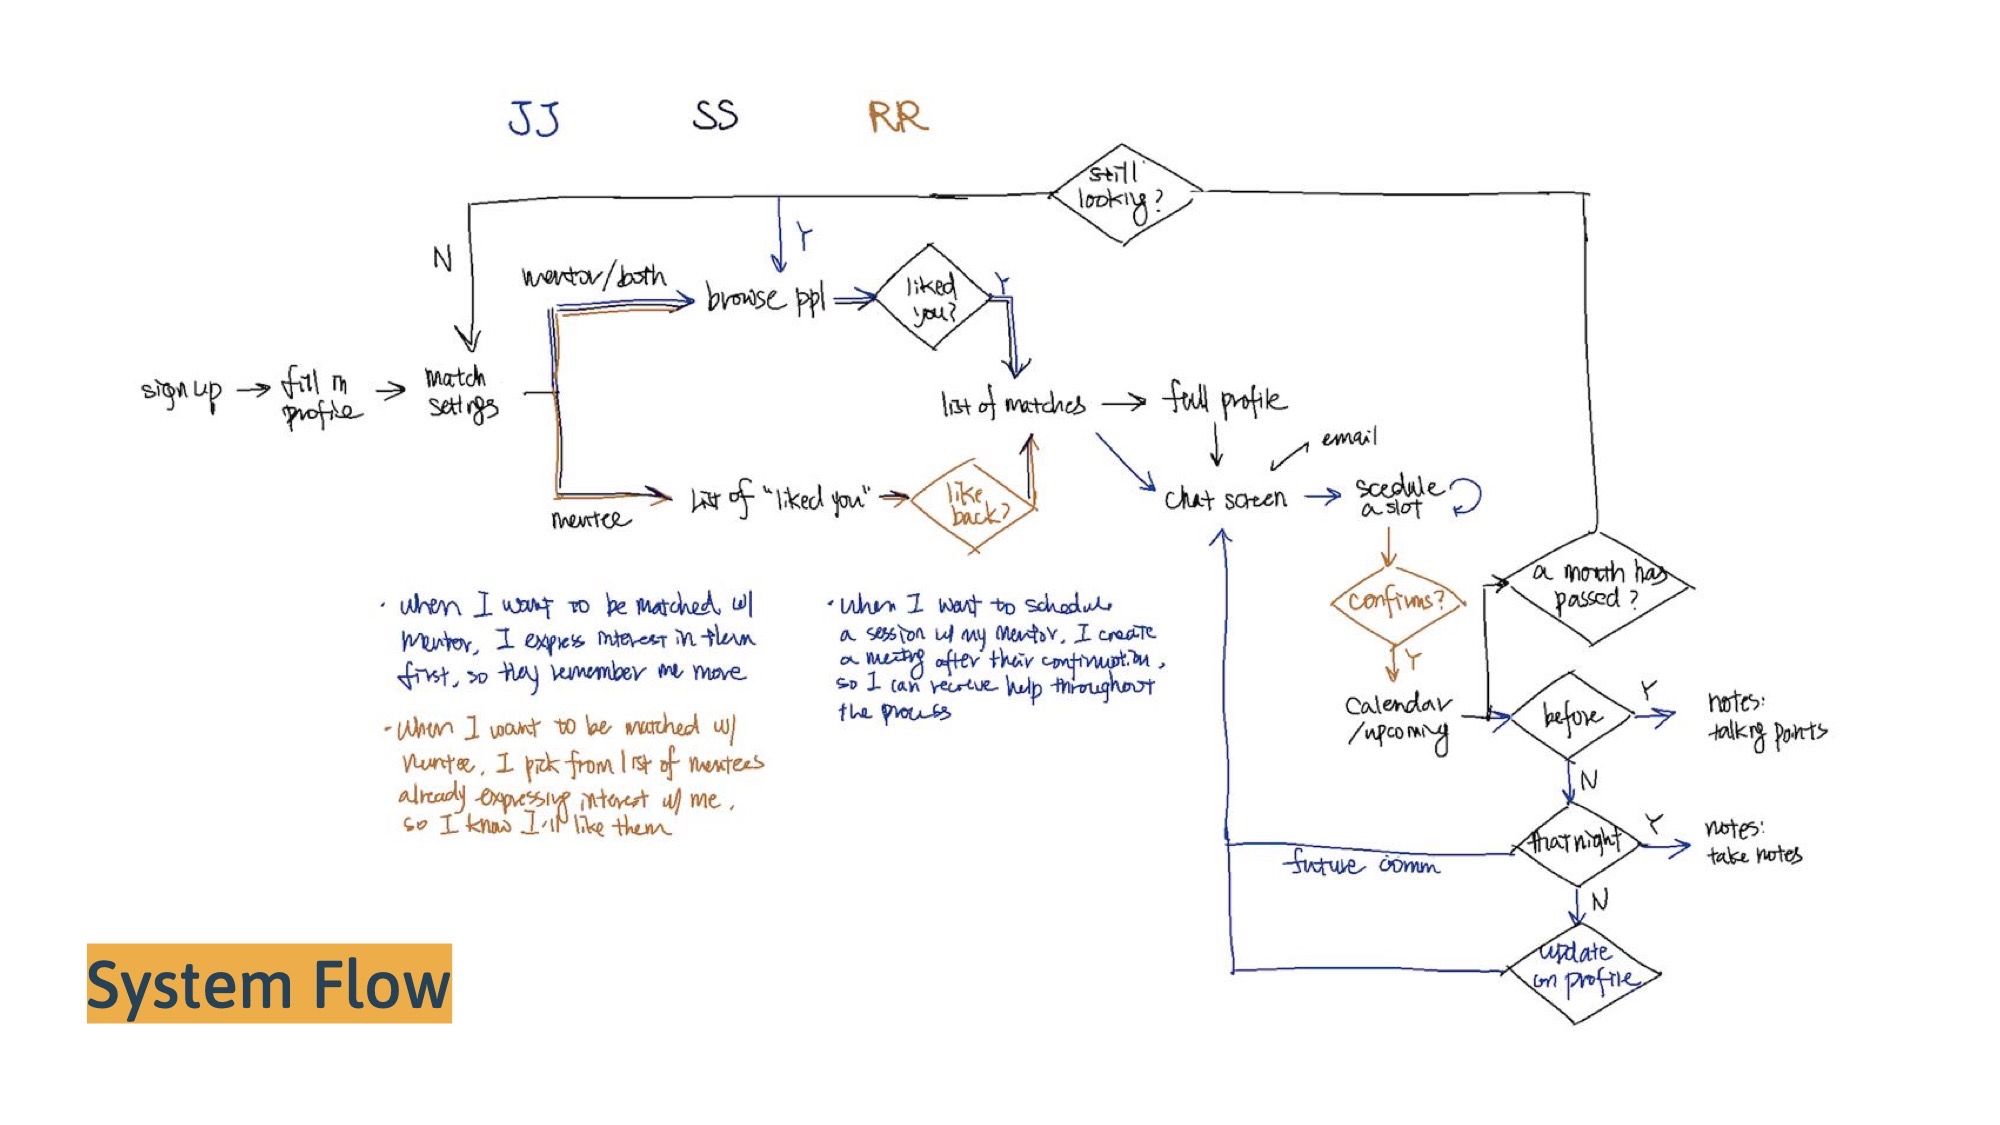 JJ SS RR
still
looking?
N
Y
mentor/both
browse ppl
liked
you?
Y
sign up
fill in
profile
match
settings
list of matches
full profile
email
mentee
list of "liked you"
like
back?
chat screen
scedule
a slot
confirms?
Y
a month has
passed?
calendar
/upcoming
before
Y
notes:
talking points
N
that night
Y
notes:
take notes
future comm
N
update
on profile
· When I want to be matched w/
mentor, I express interest in them
first, so they remember me more
· When I want to be matched w/
mentee, I pick from list of mentees
already expressing interest w/ me,
so I know I'll like them
· When I want to schedule
a session w/ my mentor, I create
a meeting after their confirmation,
so I can receive help throughout
the process
System Flow